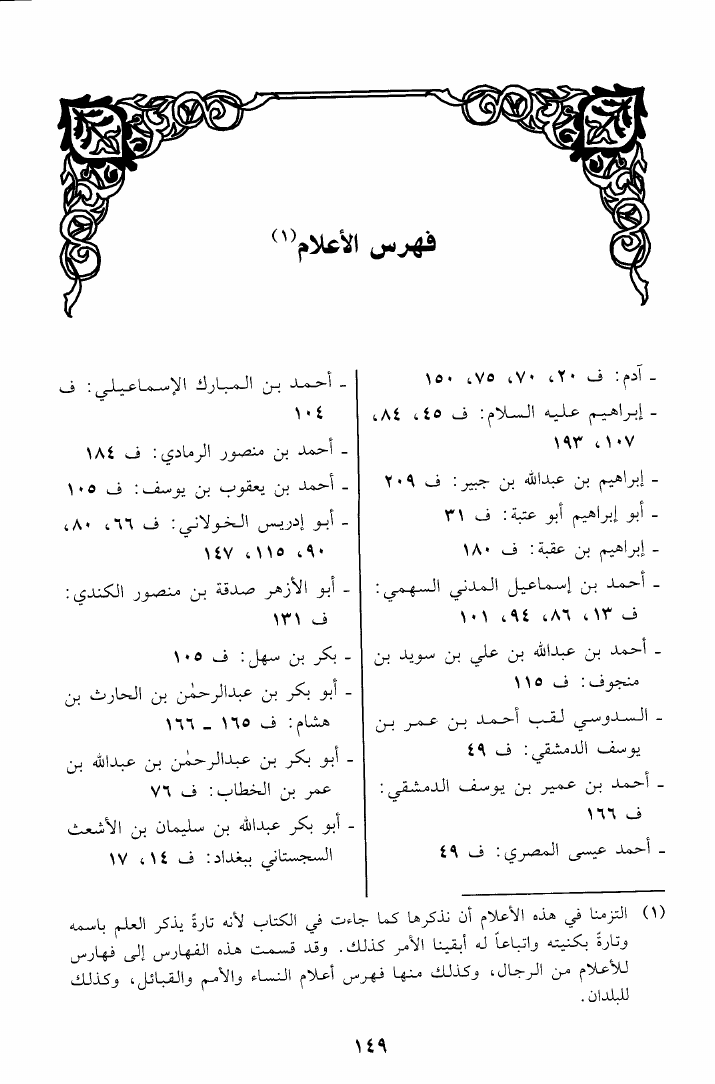 فهرس الأعلام(١)
ـ آدم: ف ٢٠، ٧٠، ٧٥، ١٥٠
ـ إبراهيم عليه السلام: ف ٤٥، ٨٤،
١٠٧، ١٩٣
ـ إبراهيم بن عبدالله بن جبير: ف ٢٠٩
ـ أبو إبراهيم أبو عتبة: ف ٣١
ـ إبراهيم بن عقبة: ف ١٨٠
ـ أحمد بن إسماعيل المدني السهمي:
ف ١٣، ٨٦، ٩٤، ١٠١
ـ أحمد بن عبدالله بن علي بن سويد بن
منجوف: ف ١١٥
ـ السدوسي لقب أحمد بن عمر بن
يوسف الدمشقي: ف ٤٩
ـ أحمد بن عمير بن يوسف الدمشقي:
ف ١٦٦
ـ أحمد عيسى المصري: ف ٤٩
ـ أحمد بن المبارك الإسماعيلي: ف
١٠٤
ـ أحمد بن منصور الرمادي: ف ١٨٤
ـ أحمد بن يعقوب بن يوسف: ف ١٠٥
ـ أبو إدريس الخولاني: ف ٦٦، ٨٠،
٩٠، ١١٥، ١٤٧
ـ أبو الأزهر صدقة بن منصور الكندي:
ف ١٣١
ـ بكر بن سهل: ف ١٠٥
ـ أبو بكر بن عبدالرحمٰن بن الحارث بن
هشام: ف ١٦٥ ـ ١٦٦
ـ أبو بكر بن عبدالرحمٰن بن عبدالله بن
عمر بن الخطاب: ف ٧٦
ـ أبو بكر عبدالله بن سليمان بن الأشعث
السجستاني ببغداد: ف ١٤، ١٧
(١) التزمنا في هذه الأعلام أن نذكرها كما جاءت في الكتاب لأنه تارةً يذكر العلم باسمه
وتارةً بكنيته واتباعاً له أبقينا الأمر كذلك. وقد قسمت هذه الفهارس إلى فهارس
للأعلام من الرجال، وكذلك منها فهرس أعلام النساء والأمم والقبائل، وكذلك
للبلدان.
١٤٩